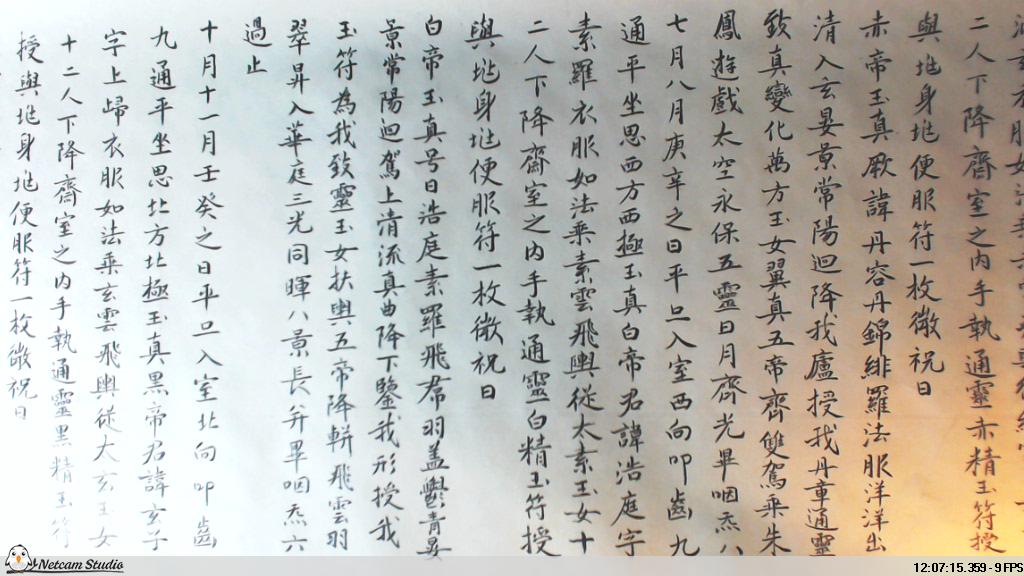 二人下降齋室之内手執通靈赤精玉符授
與垗身垗便服符一枚微祝日
赤帝玉真厥諱丹容丹錦緋羅法服洋洋出
清入玄晏景常陽迴降我廬授我丹章通靈
致真變化萬方玉女翼真五帝齊雙駕乘朱
鳳遊戲太空永保五靈日月齊光畢咽炁八
七月八月庚辛之日平旦入室西向叩齒九
通平坐思西方西極玉真白帝君諱浩庭字
素羅衣服如法乘素雲飛輿從太素玉女十
二人下降齋室之内手執通靈白精玉符授
與垗身垗便服符一枚微祝日
白帝玉真号日浩庭素羅飛帬羽盖鬱青晏
景常陽迴駕上清流真曲降下鑒我形授我
玉符為我致靈玉女扶輿五帝降軿飛雲羽
翠昇入華庭三光同暉八景長并畢咽炁六
過止
十月十一月壬癸之日平旦入室北向叩齒
九通平坐思北方北極玉真黑帝君諱玄子
字上歸衣服如法乘玄雲飛輿從太玄玉女
十二人下降齋室之内手執通靈黑精玉符
授與垗身垗便服符一枚微祝日
Netcam Studio
12:07:15.359 - 9 FPS